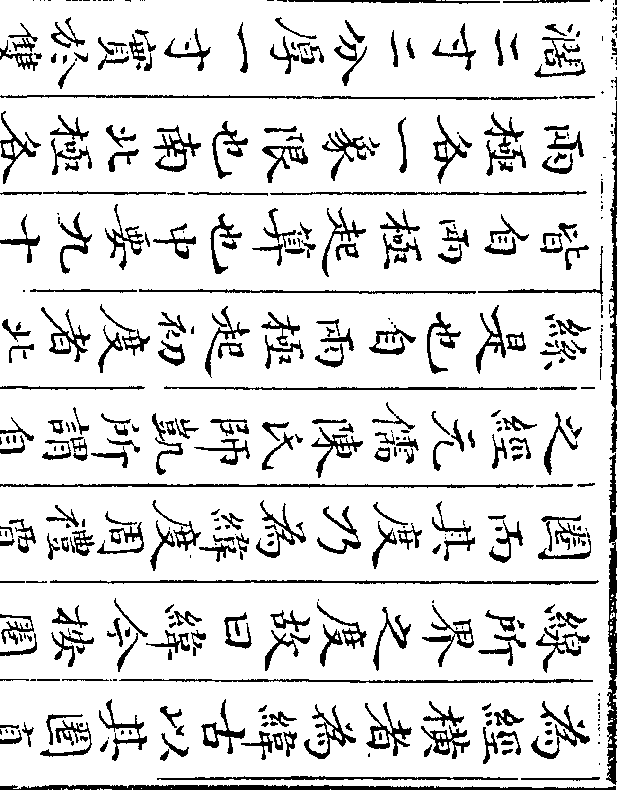 為經橫者為緯古以其圜
線所界之度故曰緯今按圜
圜而其度乃為緯度周禮
之經元儒陳氏師凱所謂自
絲是也自兩極起初度者北
皆自兩極起算也中要九十
兩極各一象限也南北極各
濶二寸二分厚一寸實於雙